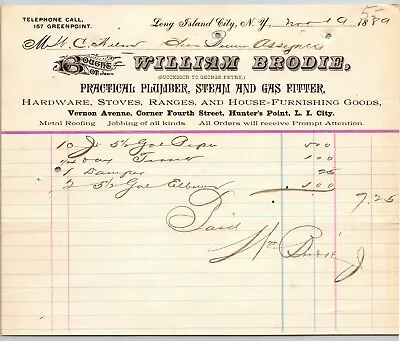 TELEPHONE CALL,
157 GREENPOINT.
Long Island City, N. Y., Nov 19 1889
M W. C. Assignee
BOUGHT OF WILLIAM BRODIE,
(SUCCESSOR TO GEORGE PETRY,)
PRACTICAL PLUMBER, STEAM AND GAS FITTER,
HARDWARE, STOVES, RANGES, AND HOUSE-FURNISHING GOODS,
Vernon Avenue, Corner Fourth Street, Hunter's Point, L. I. City.
Metal Roofing Jobbing of all kinds. All Orders will receive Prompt Attention.
10 ft 5½ Gal Pipe 500
day 100
1 Damper 25
2 5½ Gal Elbows 100
7.25
Paid
Wm Brodie